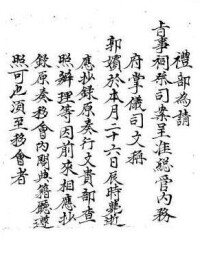 禮部為請
旨事祠祭司案呈准總管內務
府掌儀司文稱
郭嬪於本月二十六日辰時薨逝
應抄錄原奏行文貴部查
照辦理等因前來相應抄
錄原奏移會內閣典籍廳遵
照可也須至移會者